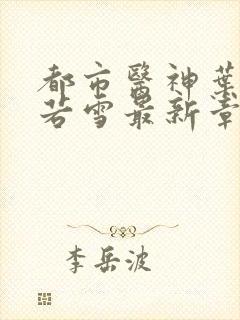 都市醫神葉
若雪最新章
李岳波